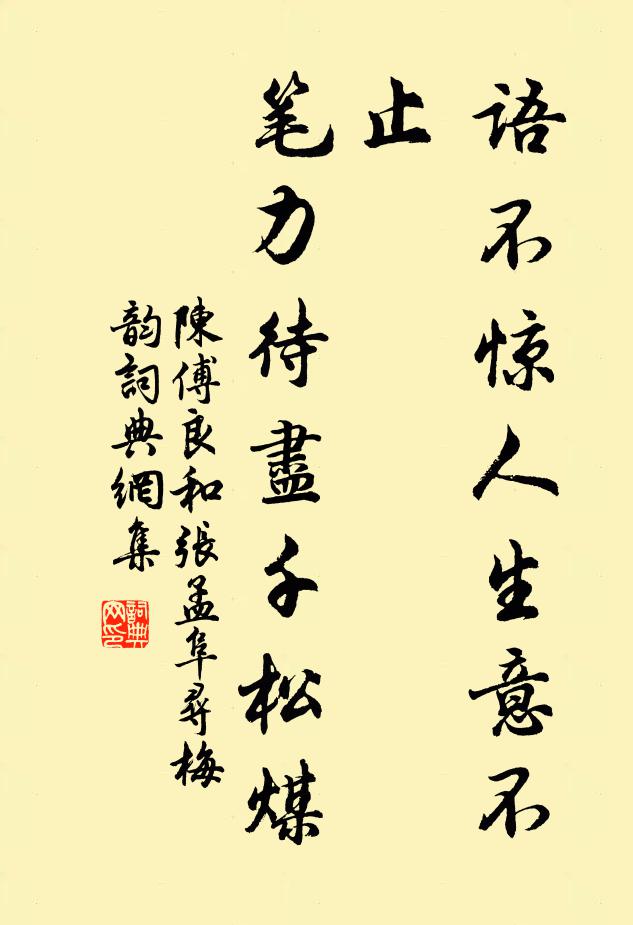 语不惊人生意不
止
笔力待盡千松煤
陳傅良和張孟阜尋梅
韵詞典網集
詞典
网印